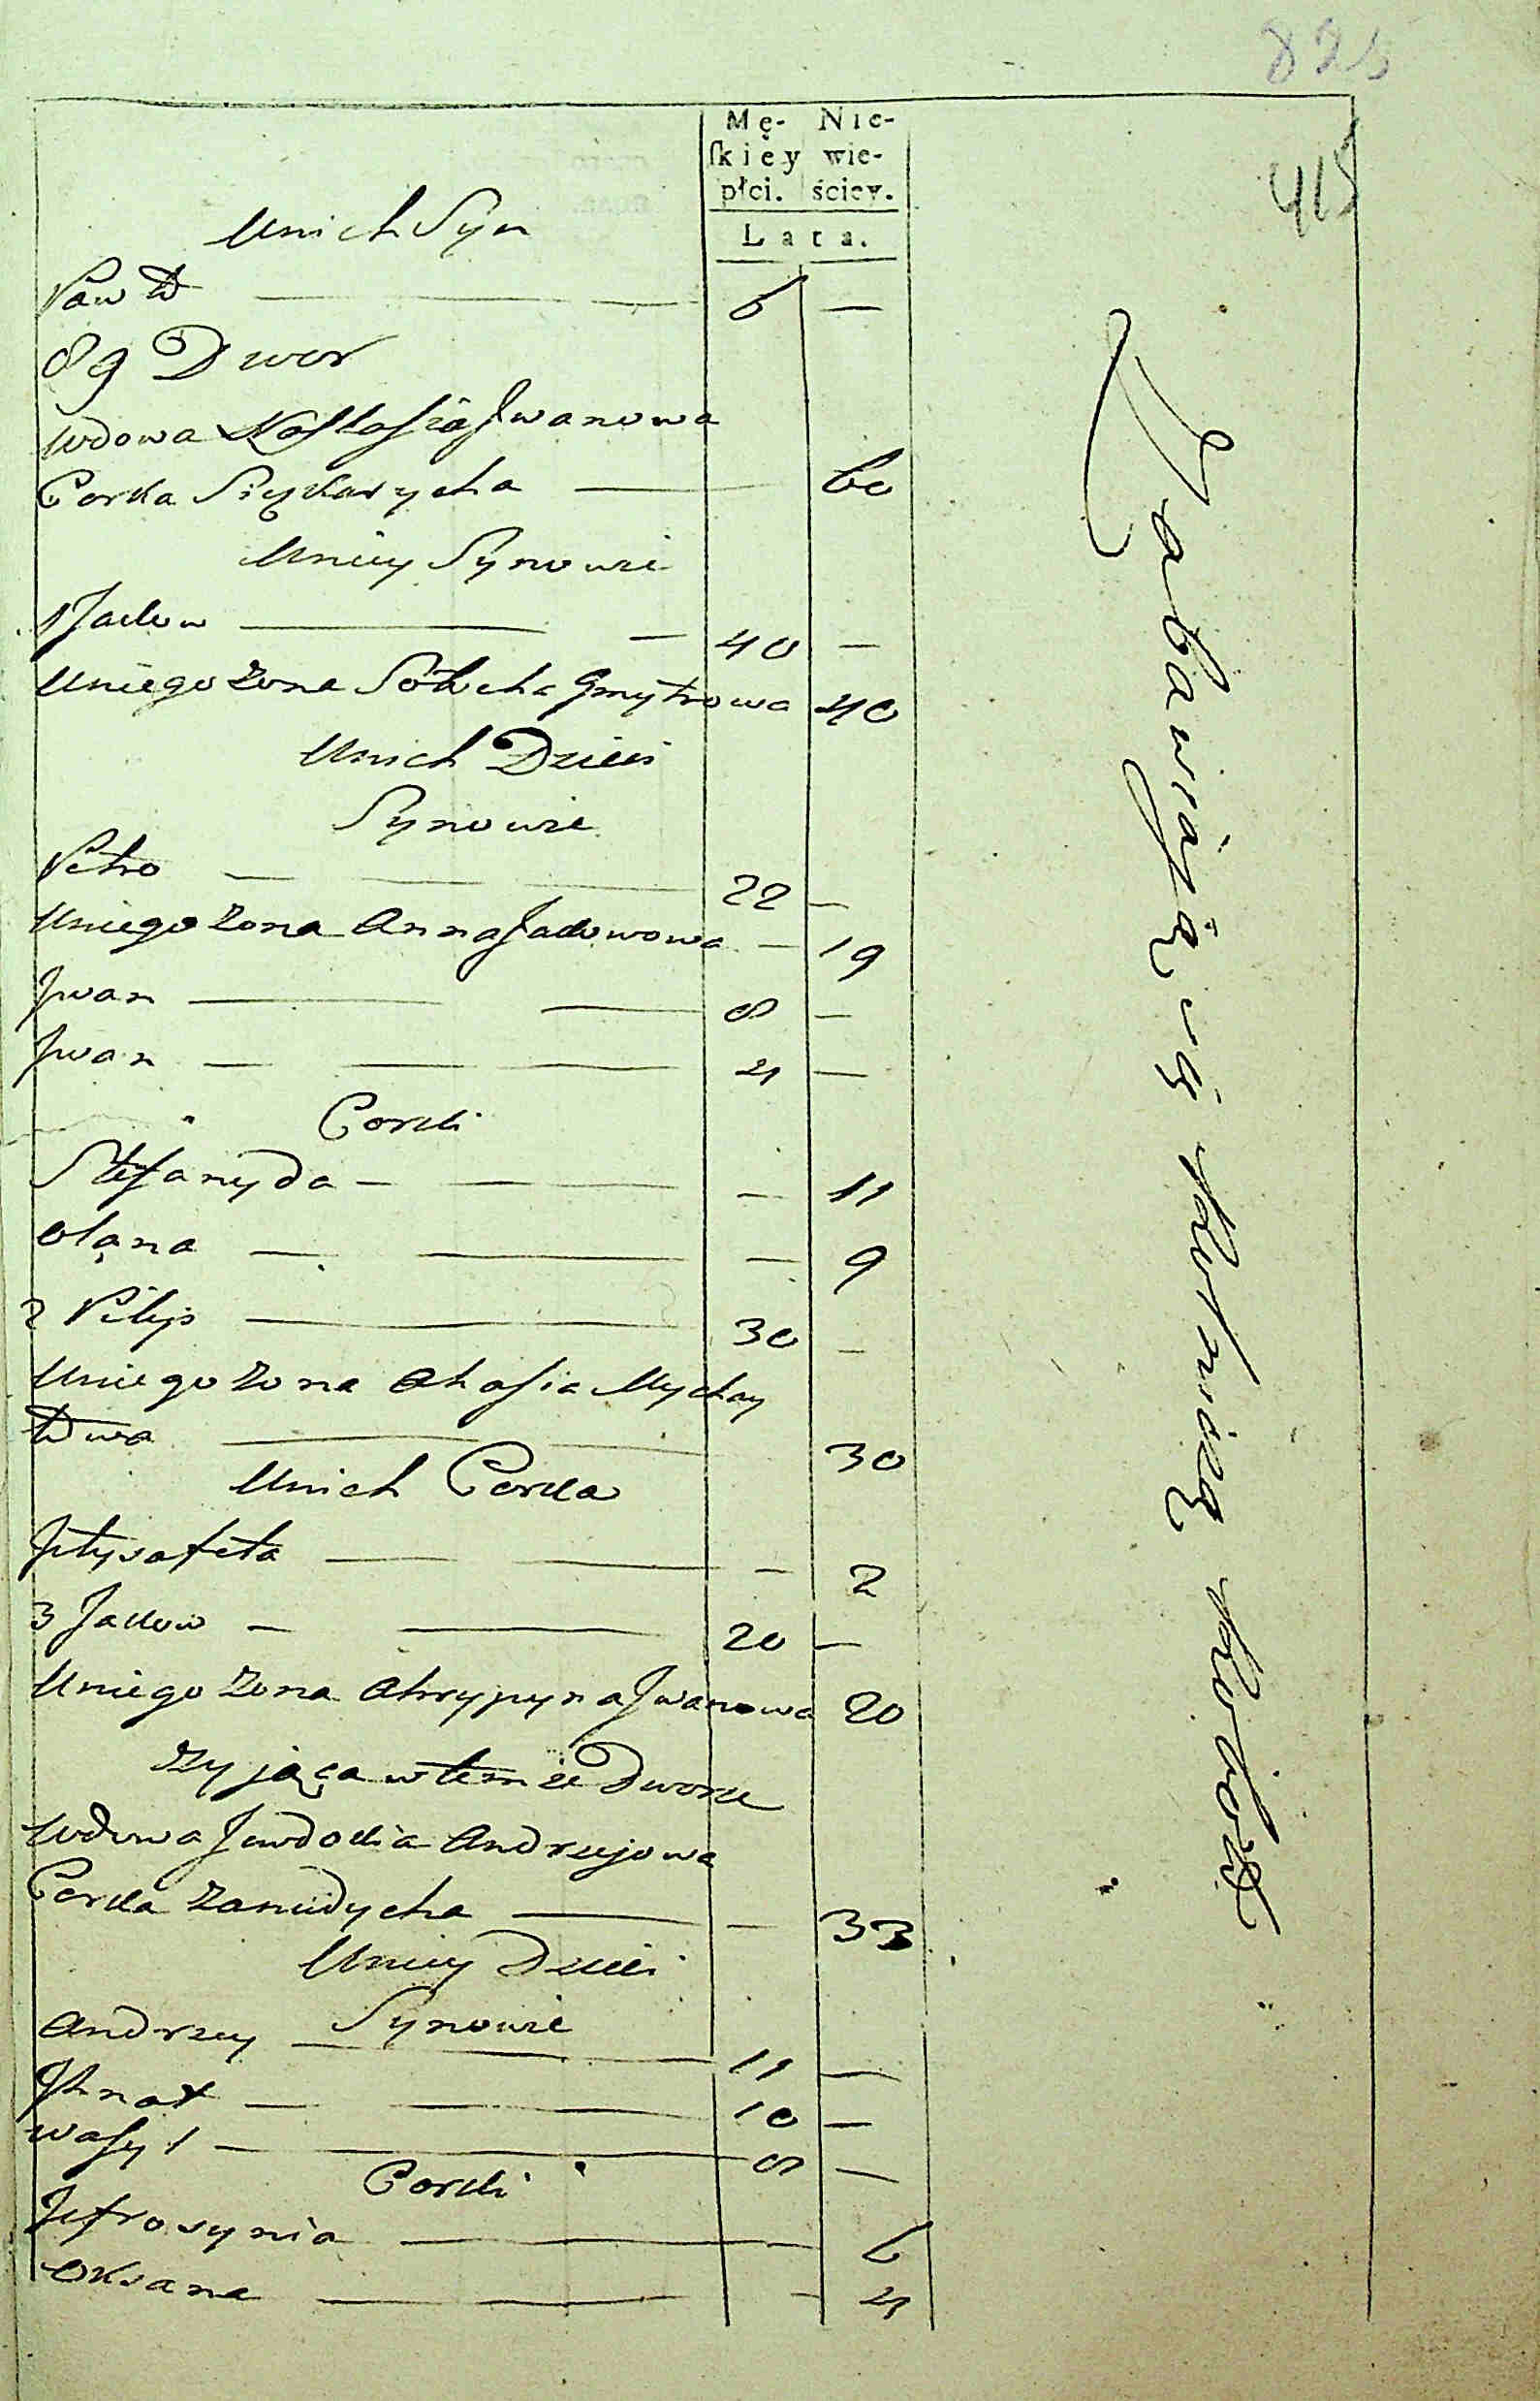 825
415
Mę- Nie-
ſkiey wie-
płci. ściey.
Lata.
Unich Syn
Paweł — 6 —
89 Dwor
Wdowa Nastasia Jwanowa
Corka — 60
Uniey Synowie
1 Jackow — 40 —
Uniego Zona Gmytrowa 40
Unich Dzieci
Synowie
Petro — 22 —
Uniego Zona Anna Jackowowa — 19
Jwan — 8 —
Jwan — 4 —
Corki
Stefanyda — — 11
Olana — — 9
2 Pilip — 30 —
Uniego Zona Ahafia Mychay
łowa — 30
Unich Corka
Jełysafeta — — 2
3 Jackow — 20 —
Uniego Zona Ahrypyna Jwanowa 20
Zyjąca w temze Dworze
Wdowa Jewdockia Andrzejowa
Corka — — 33
Uniey Dzieci
Synowie
Andrzey — 11 —
Jhnat — 10 —
Wasyl — 8 —
Corki
Jefrosynia — — 6
Oksana — — 4
Zabawiaią się Rolnictwem